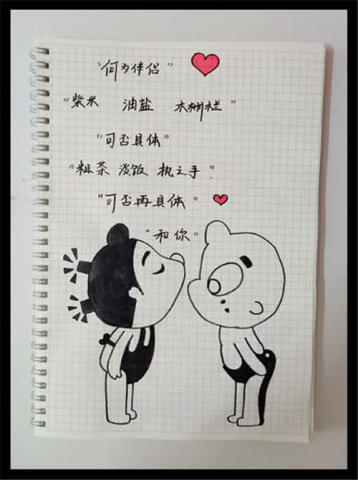 "何为伴侣"
"柴米 油盐 木栅栏"
"可否具体"
"粗茶 淡饭 执之手"
"可否再具体"
"和你"